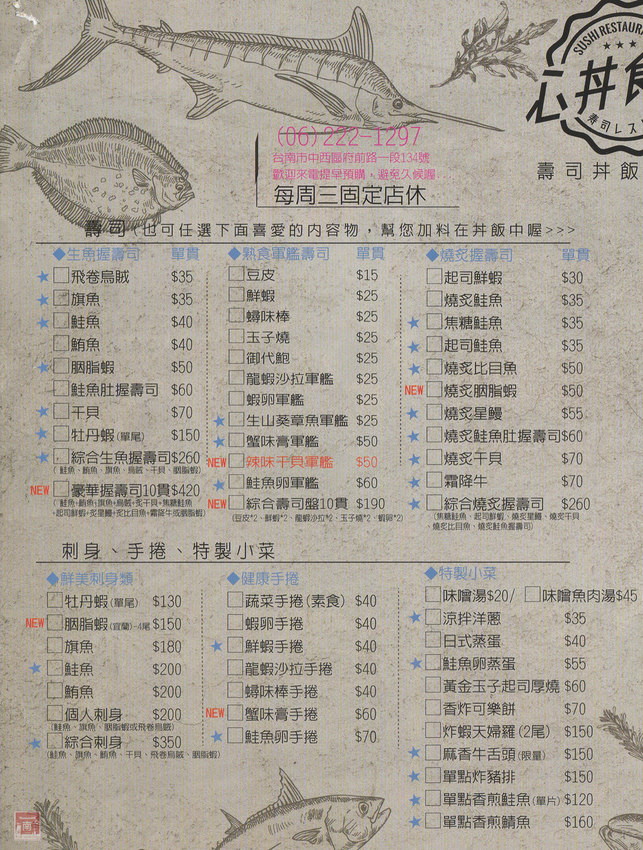 SUSHI RESTAURA
心丼食
寿司レス
壽司丼飯
(06)222-1297
台南市中西區府前路一段134號
歡迎來電提早預購，避免久候喔
每周三固定店休
壽司(也可任選下面喜愛的內容物，幫您加料在丼飯中喔>>>
◆生魚握壽司 單貫
★飛卷烏賊 $35
★旗魚 $35
★鮭魚 $40
鮪魚 $40
★胭脂蝦 $50
鮭魚肚握壽司 $60
★干貝 $70
★牡丹蝦(單尾) $150
★綜合生魚握壽司$260
(鮭魚、鮪魚、旗魚、烏賊、干貝、胭脂蝦)
NEW 豪華握壽司10貫$420
(鮭魚+鮪魚+旗魚+烏賊+炙干貝+焦糖鮭魚
+起司鮮蝦+炙星鰻+炙比目魚+霜降牛或胭脂蝦)
◆熟食軍艦壽司 單貫
豆皮 $15
鮮蝦 $25
蟳味棒 $25
玉子燒 $25
御代鮑 $25
龍蝦沙拉軍艦 $25
蝦卵軍艦 $25
★生山葵章魚軍艦 $25
★蟹味膏軍艦 $50
NEW 辣味干貝軍艦 $50
★鮭魚卵軍艦 $60
NEW 綜合壽司盤10貫 $190
(豆皮*2、鮮蝦*2、龍蝦沙拉*2、玉子燒*2、蝦卵*2)
◆燒炙握壽司 單貫
起司鮮蝦 $30
燒炙鮭魚 $35
★焦糖鮭魚 $35
★起司鮭魚 $35
★燒炙比目魚 $50
NEW 燒炙胭脂蝦 $50
★燒炙星鰻 $55
★燒炙鮭魚肚握壽司$60
★燒炙干貝 $70
★霜降牛 $70
★綜合燒炙握壽司 $260
(焦糖鮭魚、起司鮮蝦、燒炙星鰻、燒炙干貝
燒炙比目魚、燒炙鮭魚握壽司)
刺身、手捲、特製小菜
◆鮮美刺身類
牡丹蝦(單尾) $130
NEW 胭脂蝦(宜蘭)-4尾 $150
旗魚 $180
★鮭魚 $200
鮪魚 $200
個人刺身 $200
(鮭魚、旗魚、胭脂蝦或飛卷烏賊)
★綜合刺身 $350
(鮭魚、旗魚、鮪魚、干貝、飛卷烏賊、胭脂蝦)
◆健康手捲
蔬菜手捲(素食) $40
蝦卵手捲 $40
★鮮蝦手捲 $40
龍蝦沙拉手捲 $40
蟳味棒手捲 $40
NEW 蟹味膏手捲 $60
★鮭魚卵手捲 $70
◆特製小菜
味噌湯$20/ 味噌魚肉湯$45
★涼拌洋蔥 $35
日式蒸蛋 $40
★鮭魚卵蒸蛋 $55
黃金玉子起司厚燒 $60
香炸可樂餅 $70
炸蝦天婦羅(2尾) $150
★麻香牛舌頭(限量) $150
★單點炸豬排 $150
★單點香煎鮭魚(單片) $120
★單點香煎鯖魚 $160